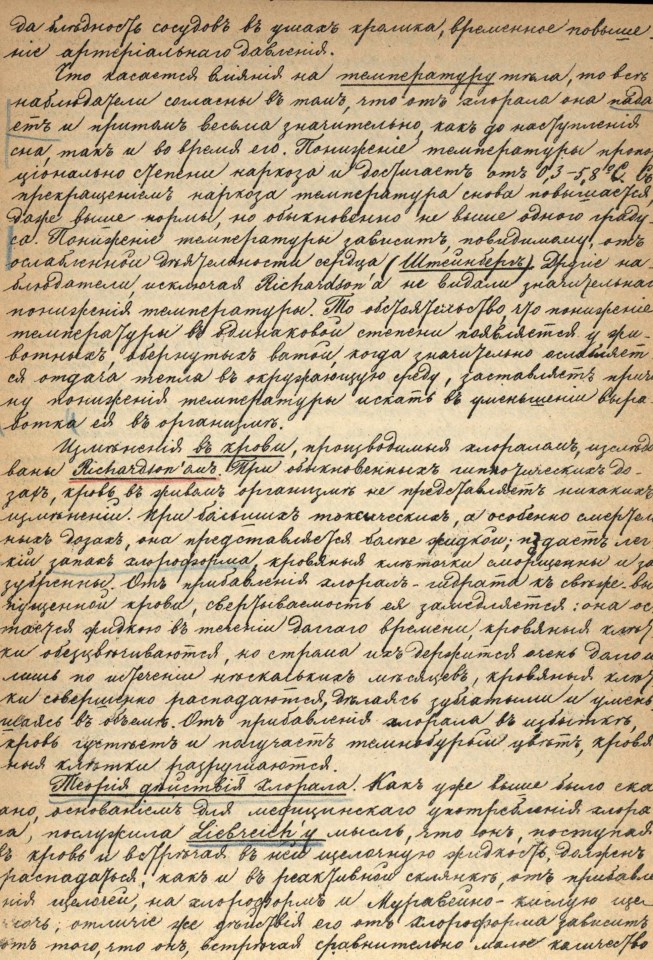 да блѣдность сосудовъ въ ушахъ кролика, временное повыше-
ніе артеріальнаго давленія.
Что касается вліянія на температуру тѣла, то всѣ
наблюдатели согласны въ томъ, что отъ хлорала она пада
етъ и притомъ весьма значительно, какъ до наступленія
сна, такъ и во время его. Пониженіе температуры пропор
ціонально степени наркоза и достигаетъ отъ 0,3–5,8°С. Съ
прекращеніемъ наркоза температура снова повышается,
даже выше нормы, но обыкновенно не выше одного граду
са. Пониженіе температуры зависитъ, повидимому, отъ
ослабленной дѣятельности сердца (Штейнбергъ). Другіе на-
блюдатели, исключая Richardson'а не видали значительнаг
пониженія температуры. То обстоятельство что пониженіе
температуры въ одинаковой степени появляется у жи-
вотныхъ обернутыхъ ватой, когда значительно ослабляет
ся отдача тепла въ окружающую среду, заставляетъ причи
ну пониженія температуры искать въ уменьшеніи выра-
ботка ея въ организмѣ.
Измѣненія въ крови, производимыя хлораломъ, изслѣдо
ваны Richardson'омъ. При обыкновенныхъ гипнотическихъ до-
захъ, кровь въ живомъ организмѣ не представляетъ никакихъ
измѣненій. При бо́льшихъ токсическихъ, а особенно смертель
ныхъ дозахъ, она представляется болѣе жидкой; издаетъ лег
кій запахъ хлороформа, кровяныя клѣточки сморщенны и за
зубренны. Отъ прибавленія хлоралъ-гидрата къ свѣже-вы
пущенной крови, свертываемость ея замедляется: она ос
тается жидкою въ теченіи долгаго времени, кровяныя клѣт
ки обезцвѣчиваются, но строма ихъ держится очень долго и
лишь по истеченіи нѣсколькихъ мѣсяцевъ, кровяныя клѣт
ки совершенно распадаются, дѣлаясь зубчатыми и умень
шаясь въ объемѣ. Отъ прибавленія хлорала въ избыткѣ,
кровь густѣетъ и получаетъ темнобурый цвѣтъ, кровя
ныя клѣтки разрушаются.
Теорія дѣйствія хлорала. Какъ уже выше было ска
ано, основаніемъ для медицинскаго употребленія хлора
ла, послужила Liebreich'у мысль, что онъ, поступая
въ кровь и встрѣчая въ ней щелочную жидкость, долженъ
распадаться, какъ и въ реактивной склянкѣ, отъ прибавле
нія щелочей, на хлороформъ и Муравейно-кислую ще
лочь; отличіе же дѣйствія его отъ хлороформа зависитъ
отъ того, что онъ, встрѣчая сравнительно малое количество